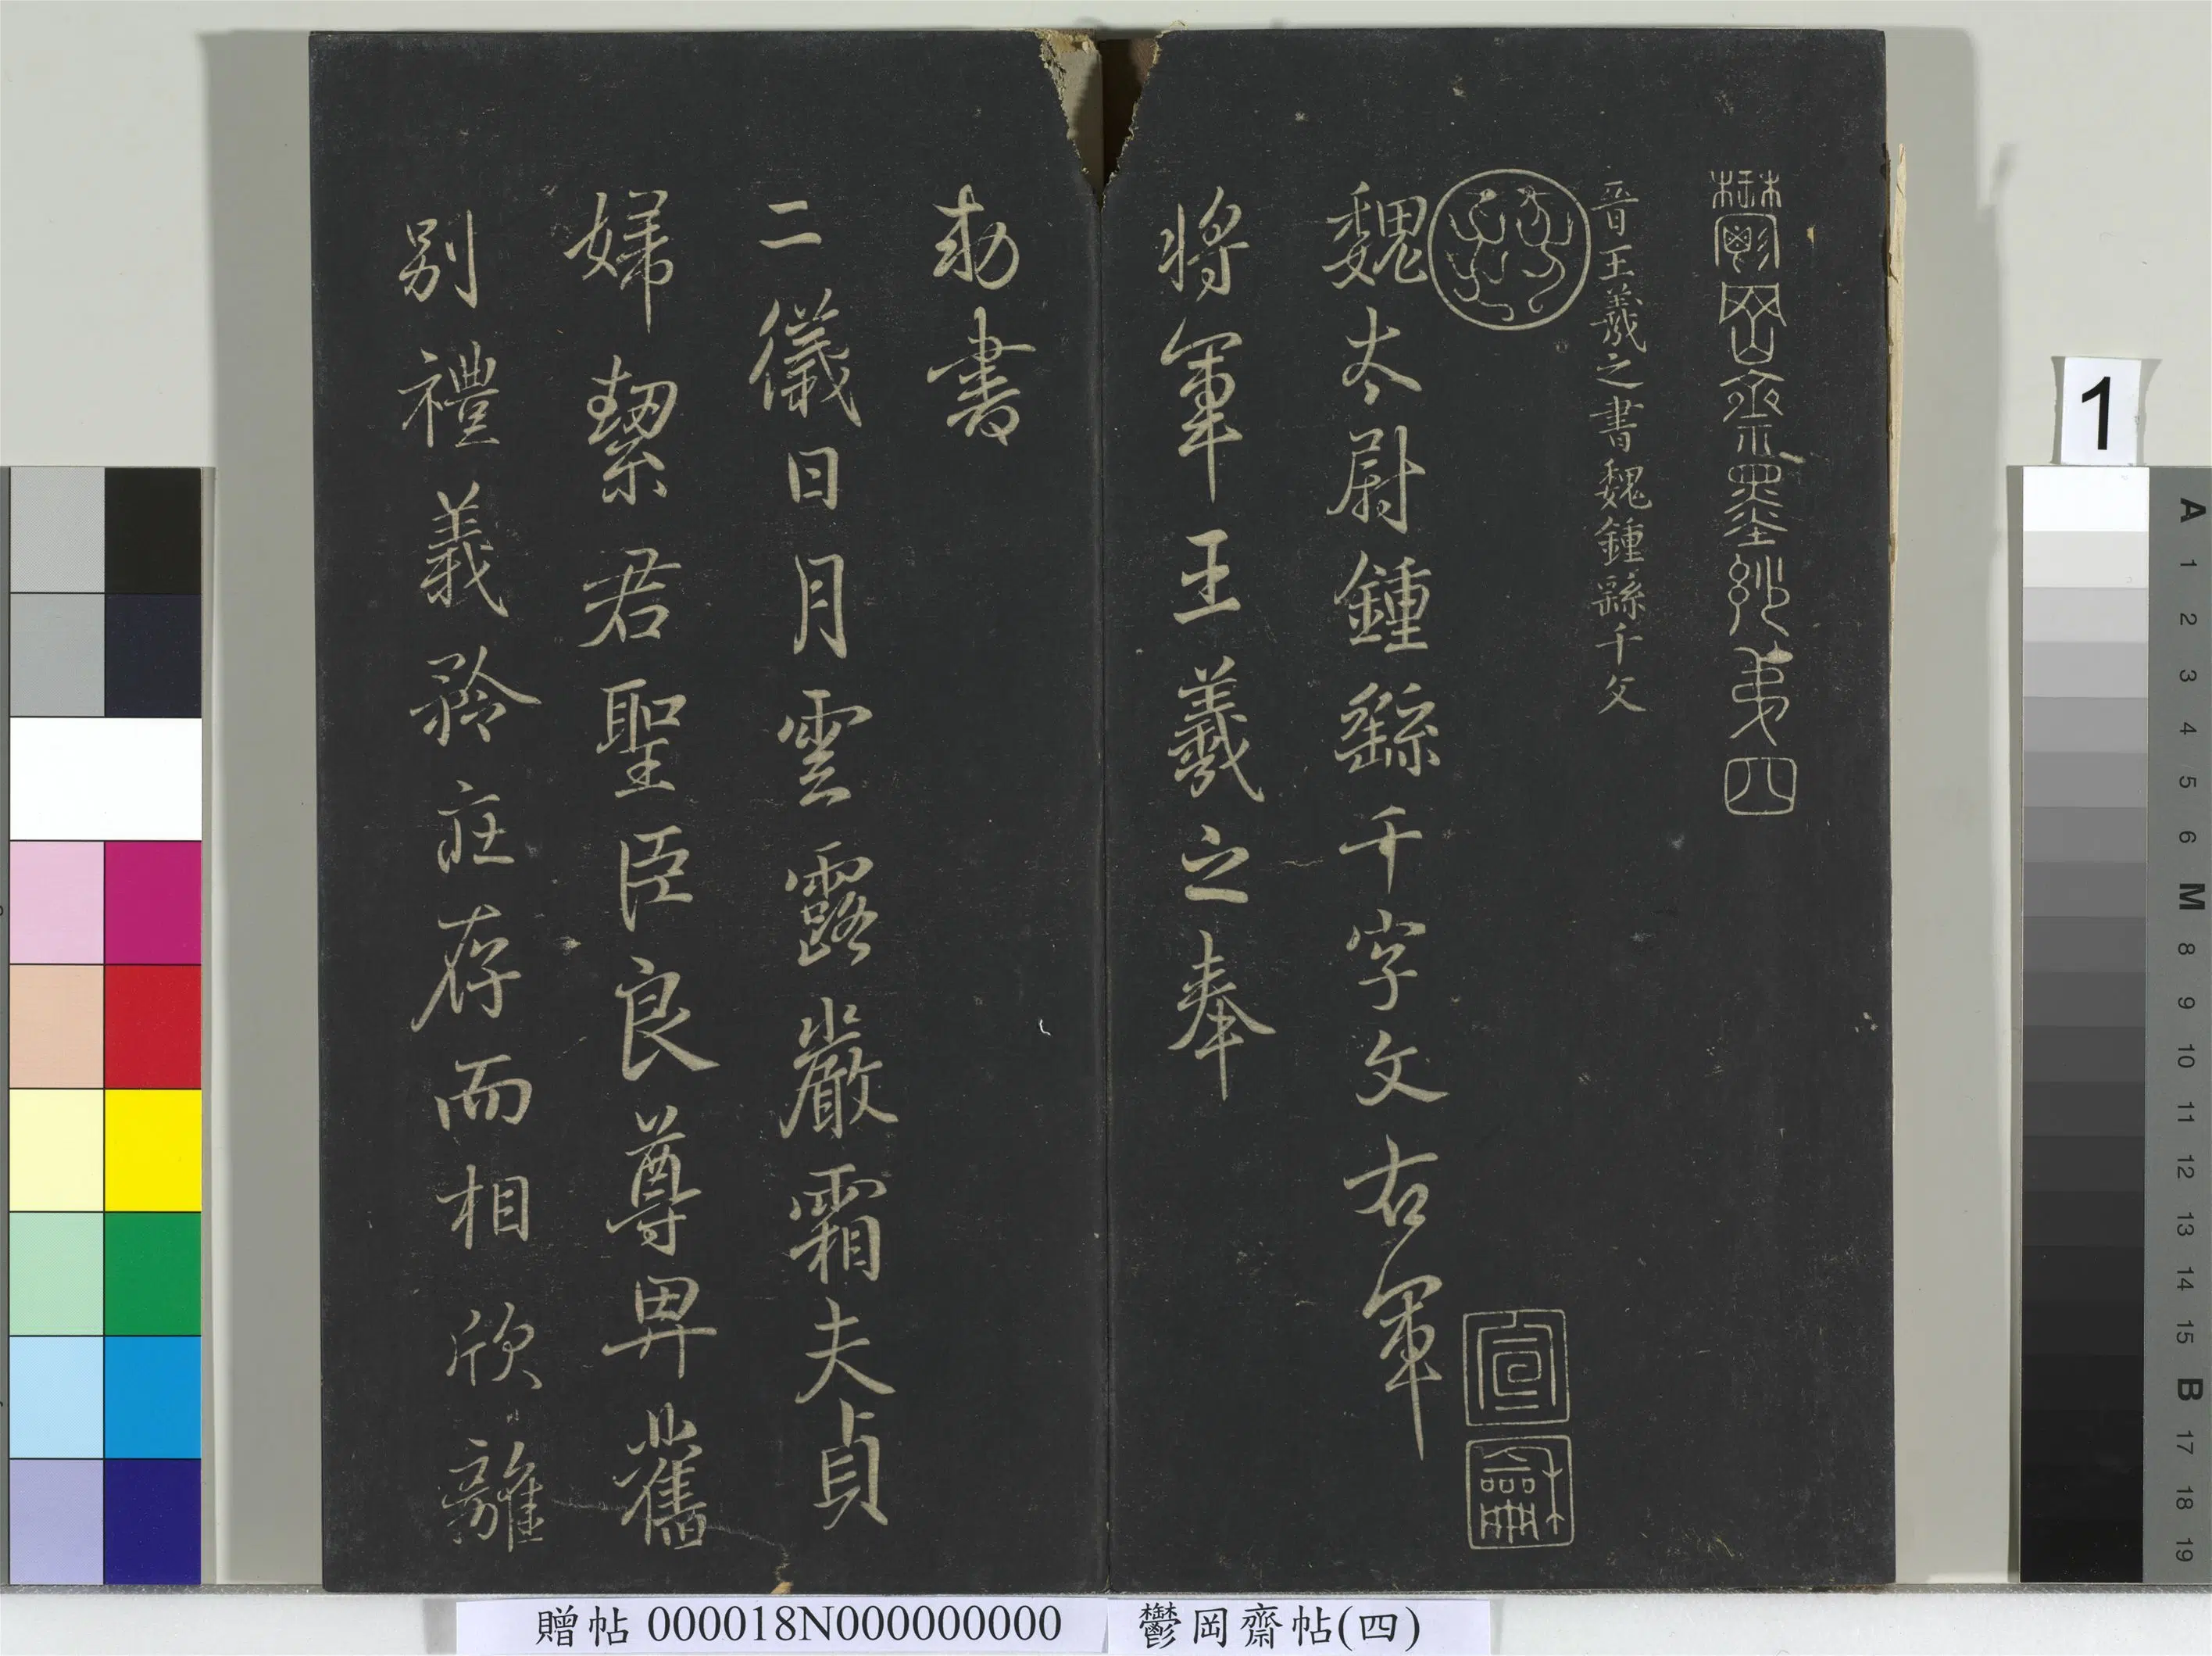 鬱岡齋墨妙第四
晉王羲之書魏鍾繇千文
魏太尉鍾繇千字文右軍
宣
龢
將軍王羲之奉
勑書
二儀日月雲露嚴霜夫貞
婦絜君聖臣良尊卑舊
別禮義矜莊存而相欣離
1
A 1 2 3 4 5 6 M 8 9 10 11 12 13 14 15 B 17 18 19
贈帖 000018N000000000
鬱岡齋帖(四)